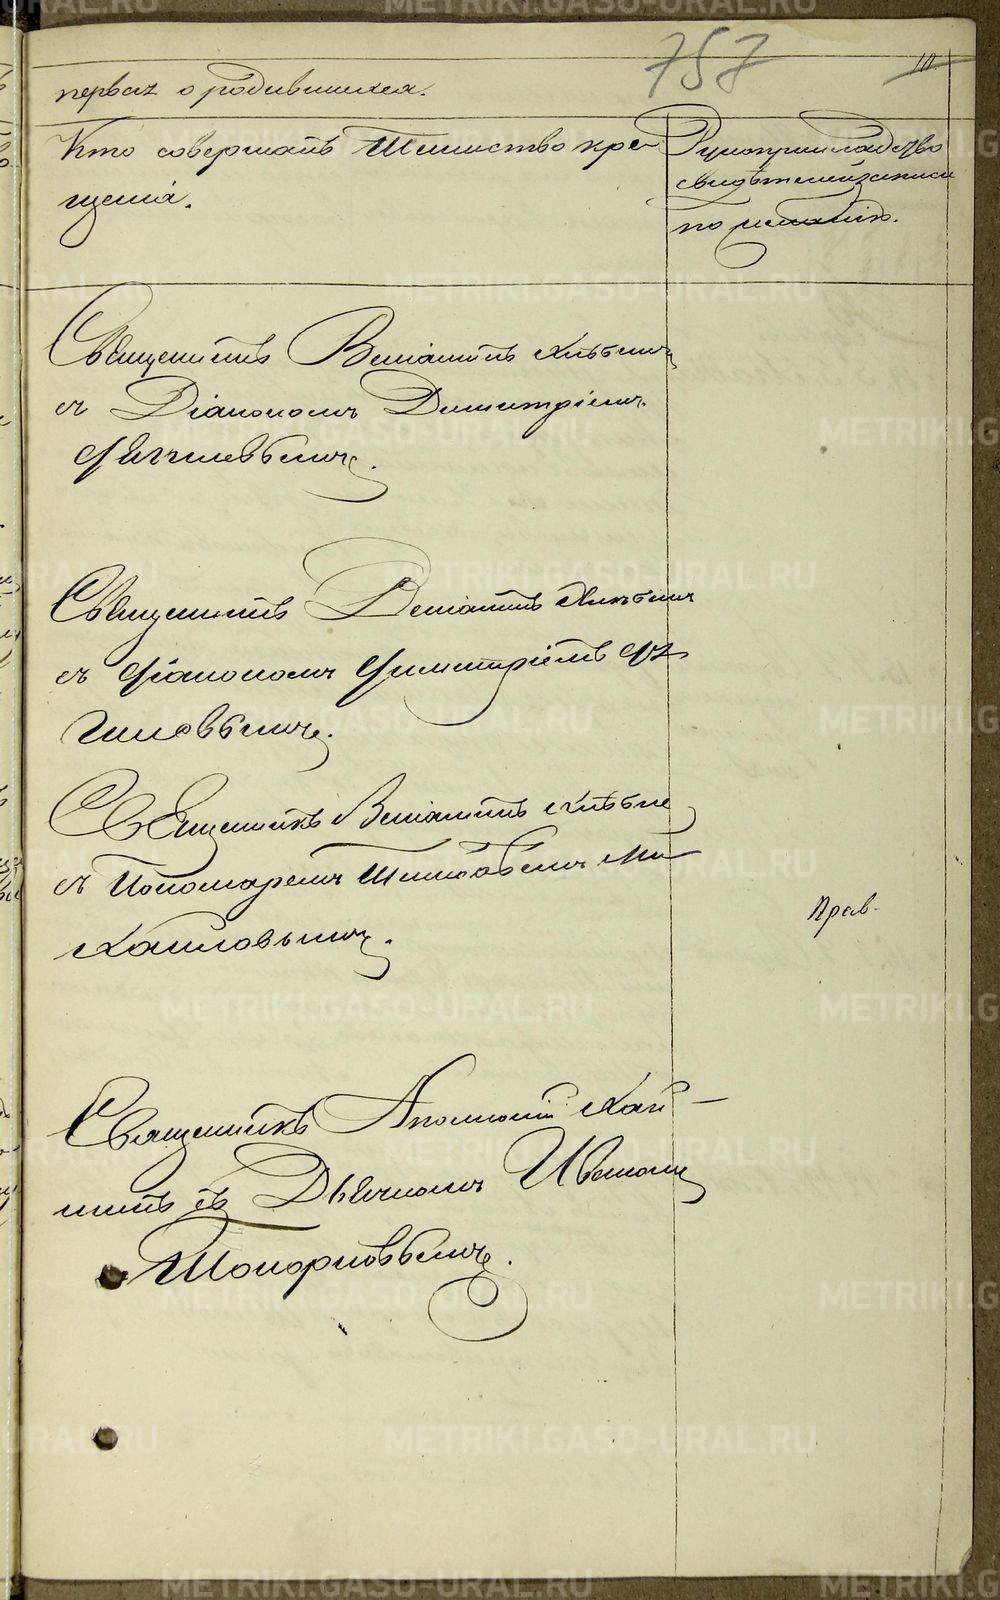 757
первая о родившихся.
Кто совершалъ Таинство кре-
щенія.
Рукоприкладство
свидѣтелей записи
по желанію.
Священникъ Веніаминъ Хлѣбинъ
съ Діакономъ Димитріемъ
Священникъ Веніаминъ Хлѣбинъ
съ Діакономъ Димитріемъ
Священникъ Веніаминъ Хлѣбинъ
съ Пономаремъ Ми-
хайловымъ.
Прав.
Священникъ Аполлоній
съ Дьячкомъ Иваномъ
Топорковымъ.
METRIKI.GASO-URAL.RU